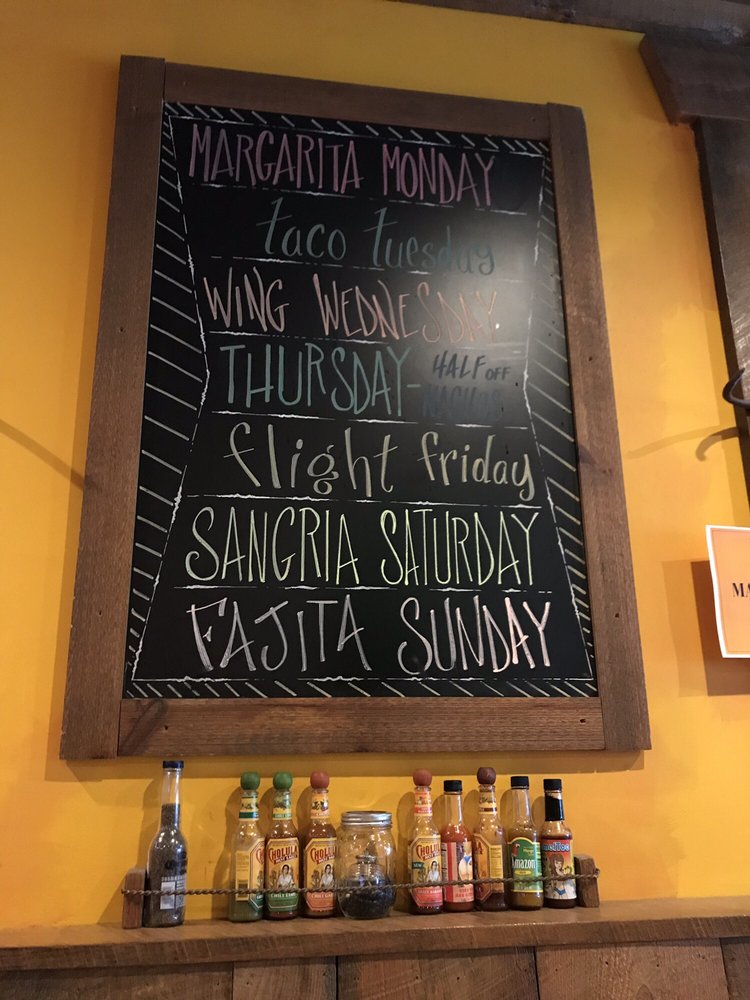 MARGARITA MONDAY
taco tuesday
WING WEDNESDAY
THURSDAY- HALF OFF
NACHOS
flight friday
SANGRIA SATURDAY
FAJITA SUNDAY
MA
CHOLULA
CHOLULA
CHOLULA
Amazon